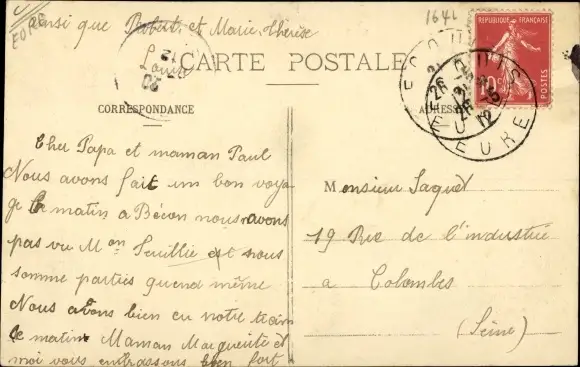 ainsi que Robert et Marie Thérèse
EURE
1641
CARTE POSTALE
RÉPUBLIQUE FRANÇAISE
10c
POSTES
EURE
CORRESPONDANCE
ADRESSE
Cher Papa et maman Paul
Nous avons fait un bon voya
ge le matin a Bécon nous avons
pas vu Mon Feuillie et nous
somme parties quend même
Nous avons bien eu notre train
le matin Maman Marguerite et
moi vous embrassons bien fort
Monsieur Jaquet
19 Rue de l'industrie
a Colombes
(Seine)